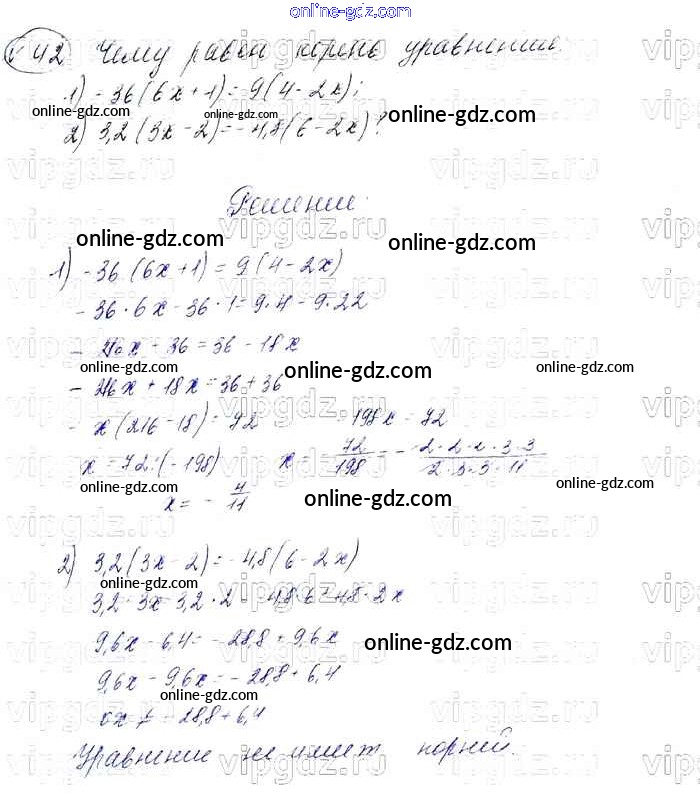 online-gdz.com
42 Чему равен корень уравнения:
1) -36(6x+1)=9(4-2x);
online-gdz.com online-gdz.com online-gdz.com
2) 3,2(3x-2)=-4,8(6-2x)?
Решение:
online-gdz.com online-gdz.com
1) -36(6x+1)=9(4-2x)
-36·6x-36·1=9·4-9·22
- x-36=36-18x
online-gdz.com online-gdz.com
-216x+18x=36+36
- x(216-18)=72 -198x=72
x=72:(-198) x= 72/198 = - 2·2·2·3·3/2·3·3·11
online-gdz.com online-gdz.com online-gdz.com
x= - 4/11
2) 3,2(3x-2)=-4,8(6-2x)
online-gdz.com
3,2·3x-3,2·2 4,8·6 4,8·2x
9,6x-6,4=-28,8+9,6x
online-gdz.com
9,6x-9,6x=-28,8+6,4
online-gdz.com
0x≠-28,8+6,4
Уравнение не имеет корней.
vipgdz.ru